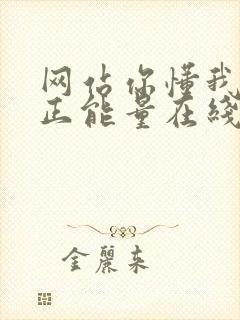 网估你懂我
正能量在线
金丽来